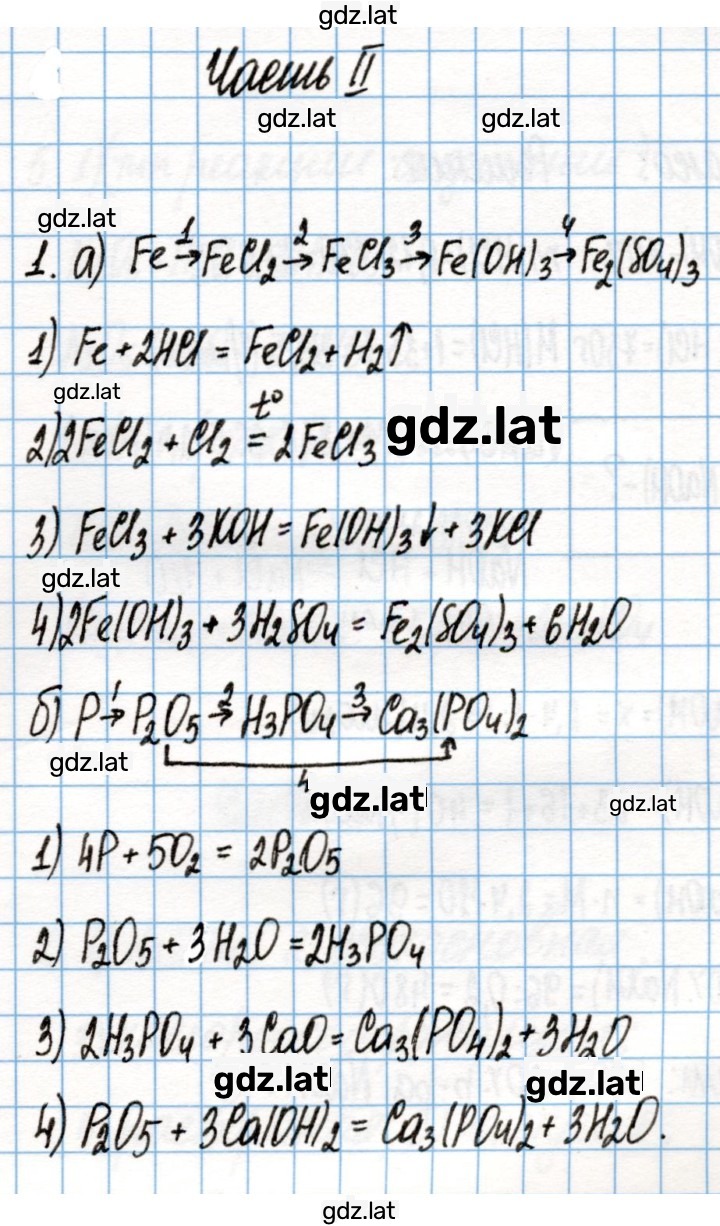 gdz.lat
Часть II
gdz.lat gdz.lat
gdz.lat
1. а) Fe →¹ FeCl₂ →² FeCl₃ →³ Fe(OH)₃ →⁴ Fe₂(SO₄)₃
1) Fe + 2HCl = FeCl₂ + H₂↑
gdz.lat
t°
2) 2FeCl₂ + Cl₂ = 2FeCl₃ gdz.lat
3) FeCl₃ + 3KOH = Fe(OH)₃↓ + 3KCl
gdz.lat
4) 2Fe(OH)₃ + 3H₂SO₄ = Fe₂(SO₄)₃ + 6H₂O
б) P →¹ P₂O₅ →² H₃PO₄ →³ Ca₃(PO₄)₂
gdz.lat
4 gdz.lat gdz.lat
1) 4P + 5O₂ = 2P₂O₅
2) P₂O₅ + 3H₂O = 2H₃PO₄
3) 2H₃PO₄ + 3CaO = Ca₃(PO₄)₂ + 3H₂O
gdz.lat gdz.lat
4) P₂O₅ + 3Ca(OH)₂ = Ca₃(PO₄)₂ + 3H₂O.
gdz.lat